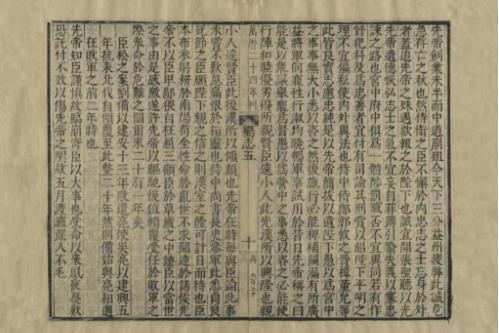 先帝創業未半而中道崩殂今天下三分益州疲弊此誠危
急存亡之秋也然侍衛之臣不懈於內忠志之士忘身於外
者蓋追先帝之殊遇欲報之於陛下也誠宜開張聖聽以光
先帝遺德恢弘志士之氣不宜妄自菲薄引喻失義以塞忠
諫之路也宮中府中俱為一體陟罰臧否不宜異同若有作
奸犯科及為忠善者宜付有司論其刑賞以昭陛下平明之
理不宜偏私使內外異法也侍中侍郎郭攸之費禕董允等
此皆良實志慮忠純是以先帝簡拔以遺陛下愚以為宮中
之事事無大小悉以咨之然後施行必能裨補闕漏有所廣
益將軍向寵性行淑均曉暢軍事試用於昔日先帝稱之曰
能是以衆議舉寵為督愚以為營中之事悉以咨之必能使
行陣和睦優劣得所親賢臣遠小人此先漢所以興隆也親
萬曆二十四年刊
蜀志五
十一
小人遠賢臣此後漢所以傾頹也先帝在時每與臣論此事
未嘗不歎息痛恨於桓靈也侍中尚書長史參軍此悉貞良
死節之臣願陛下親之信之則漢室之隆可計日而待也臣
本布衣躬耕於南陽苟全性命於亂世不求聞達於諸侯先
帝不以臣卑鄙猥自枉屈三顧臣於草廬之中諮臣以當世
之事由是感激遂許先帝以驅馳後值傾覆受任於敗軍之
際奉命於危難之間爾來二十有一年矣
臣松之案劉備以建安十三年敗遣亮使吳亮以建興五
年抗表北伐自傾覆至此整二十年然則備始與亮相遇
在敗軍之前一年時也
先帝知臣謹慎故臨崩寄臣以大事也受命以來夙夜憂歎
恐託付不效以傷先帝之明故五月渡瀘深入不毛